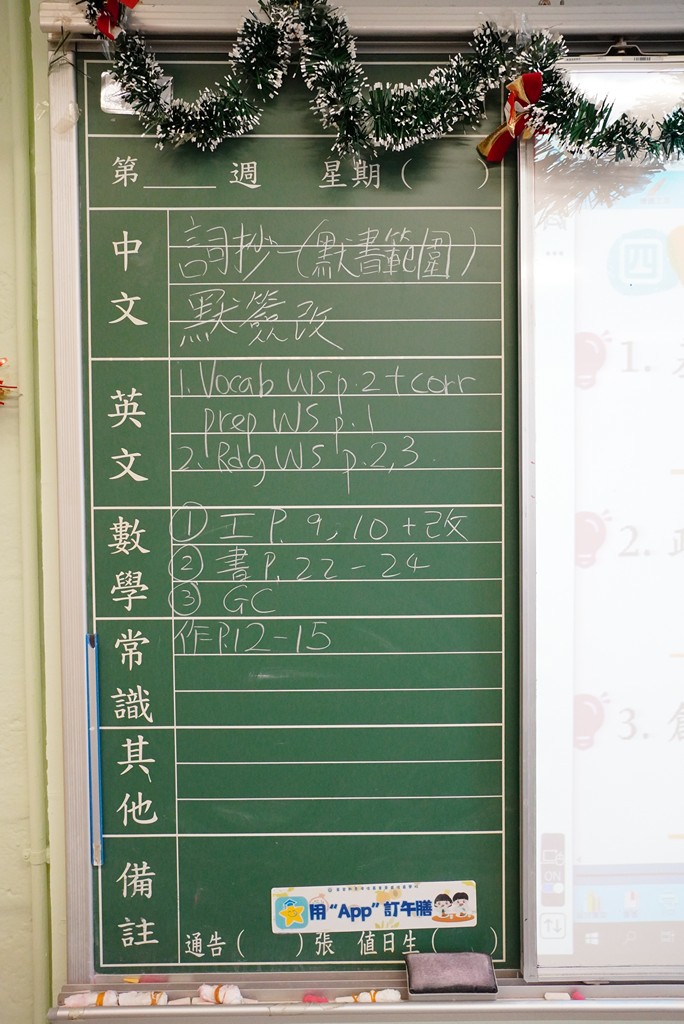 第____週 星期( )
中文
詞抄一(默書範圍)
默簽改
英文
1. Vocab WS p.2 + corr
prep WS p.1
2. Rdg WS p.2,3.
數學
① 工 P. 9, 10 + 改
② 書 P. 22 - 24
③ GC
常識
作 P.12 - 15
其他
備註
用“App”訂午膳
通告( )張 值日生( )
四
1.
2.
3.
ON